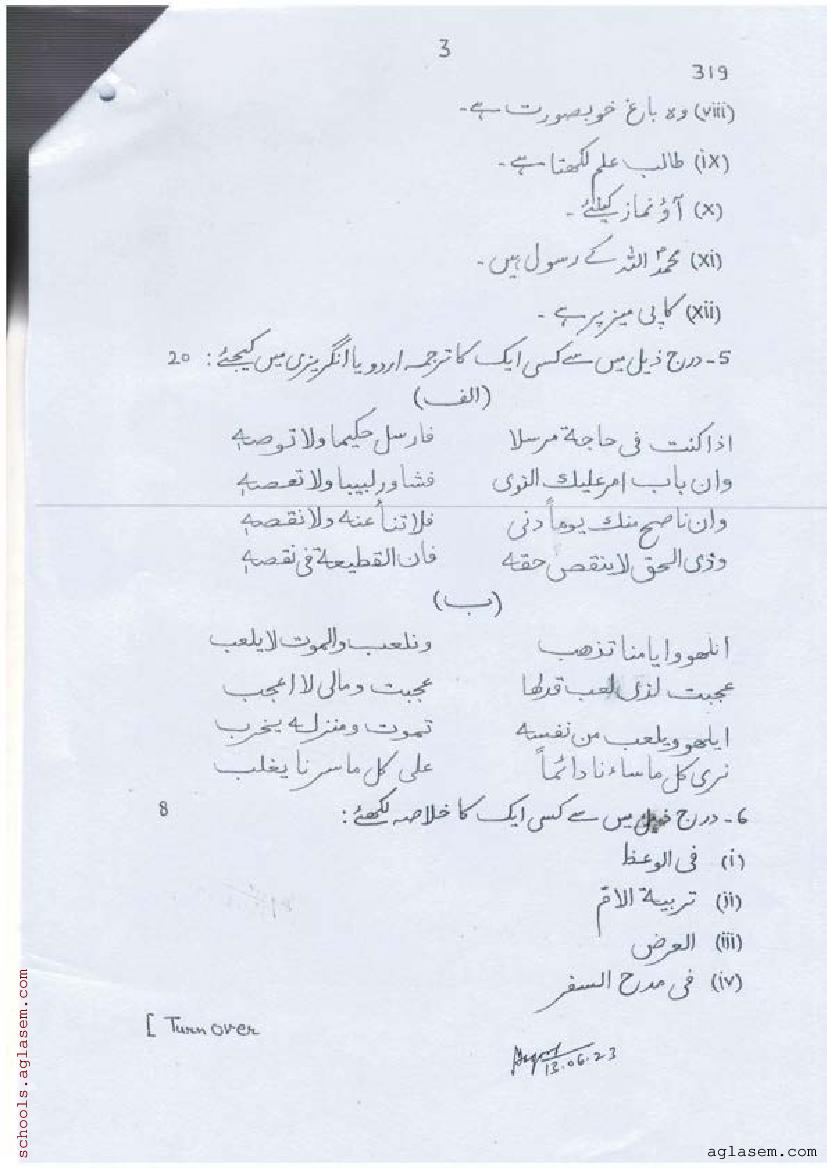 3
319
(viii) وہ باغ خوبصورت ہے۔
(ix) طالب علم لکھتا ہے۔
(x) آؤ نماز کیلئے۔
(xi) محمدؐ اللہ کے رسول ہیں۔
(xii) کاپی میز پر ہے۔
5۔ درج ذیل میں سے کسی ایک کا ترجمہ اردو یا انگریزی میں کیجئے: 20
(الف)
اذا كنت فى حاجة مرسلا فارسل حكيما ولا توصه
وان باب امر عليك التوى فشاور لبيبا ولا تعصه
وان ناصح منك يوماً دنى فلا تنأ عنه ولا تقصه
وذى الحق لا ينتقص حقه فان القطيعة فى نقصه
(ب)
انلهو وايامنا تذهب ونلعب والموت لا يلعب
عجبت لذى لعب قد لها عجبت ومالى لا اعجب
ايلهو ويلعب من نفسه تموت ومنزله يخرب
نرى كل ما ساءنا دائماً على كل ما سرنا يغلب
6۔ درج ذیل میں سے کسی ایک کا خلاصہ لکھئے: 8
(i) فى الوعظ
(ii) تربية الامّ
(iii) العرض
(iv) فى مدح السفر
[ Turn over
13.06.23
schools.aglasem.com
aglasem.com